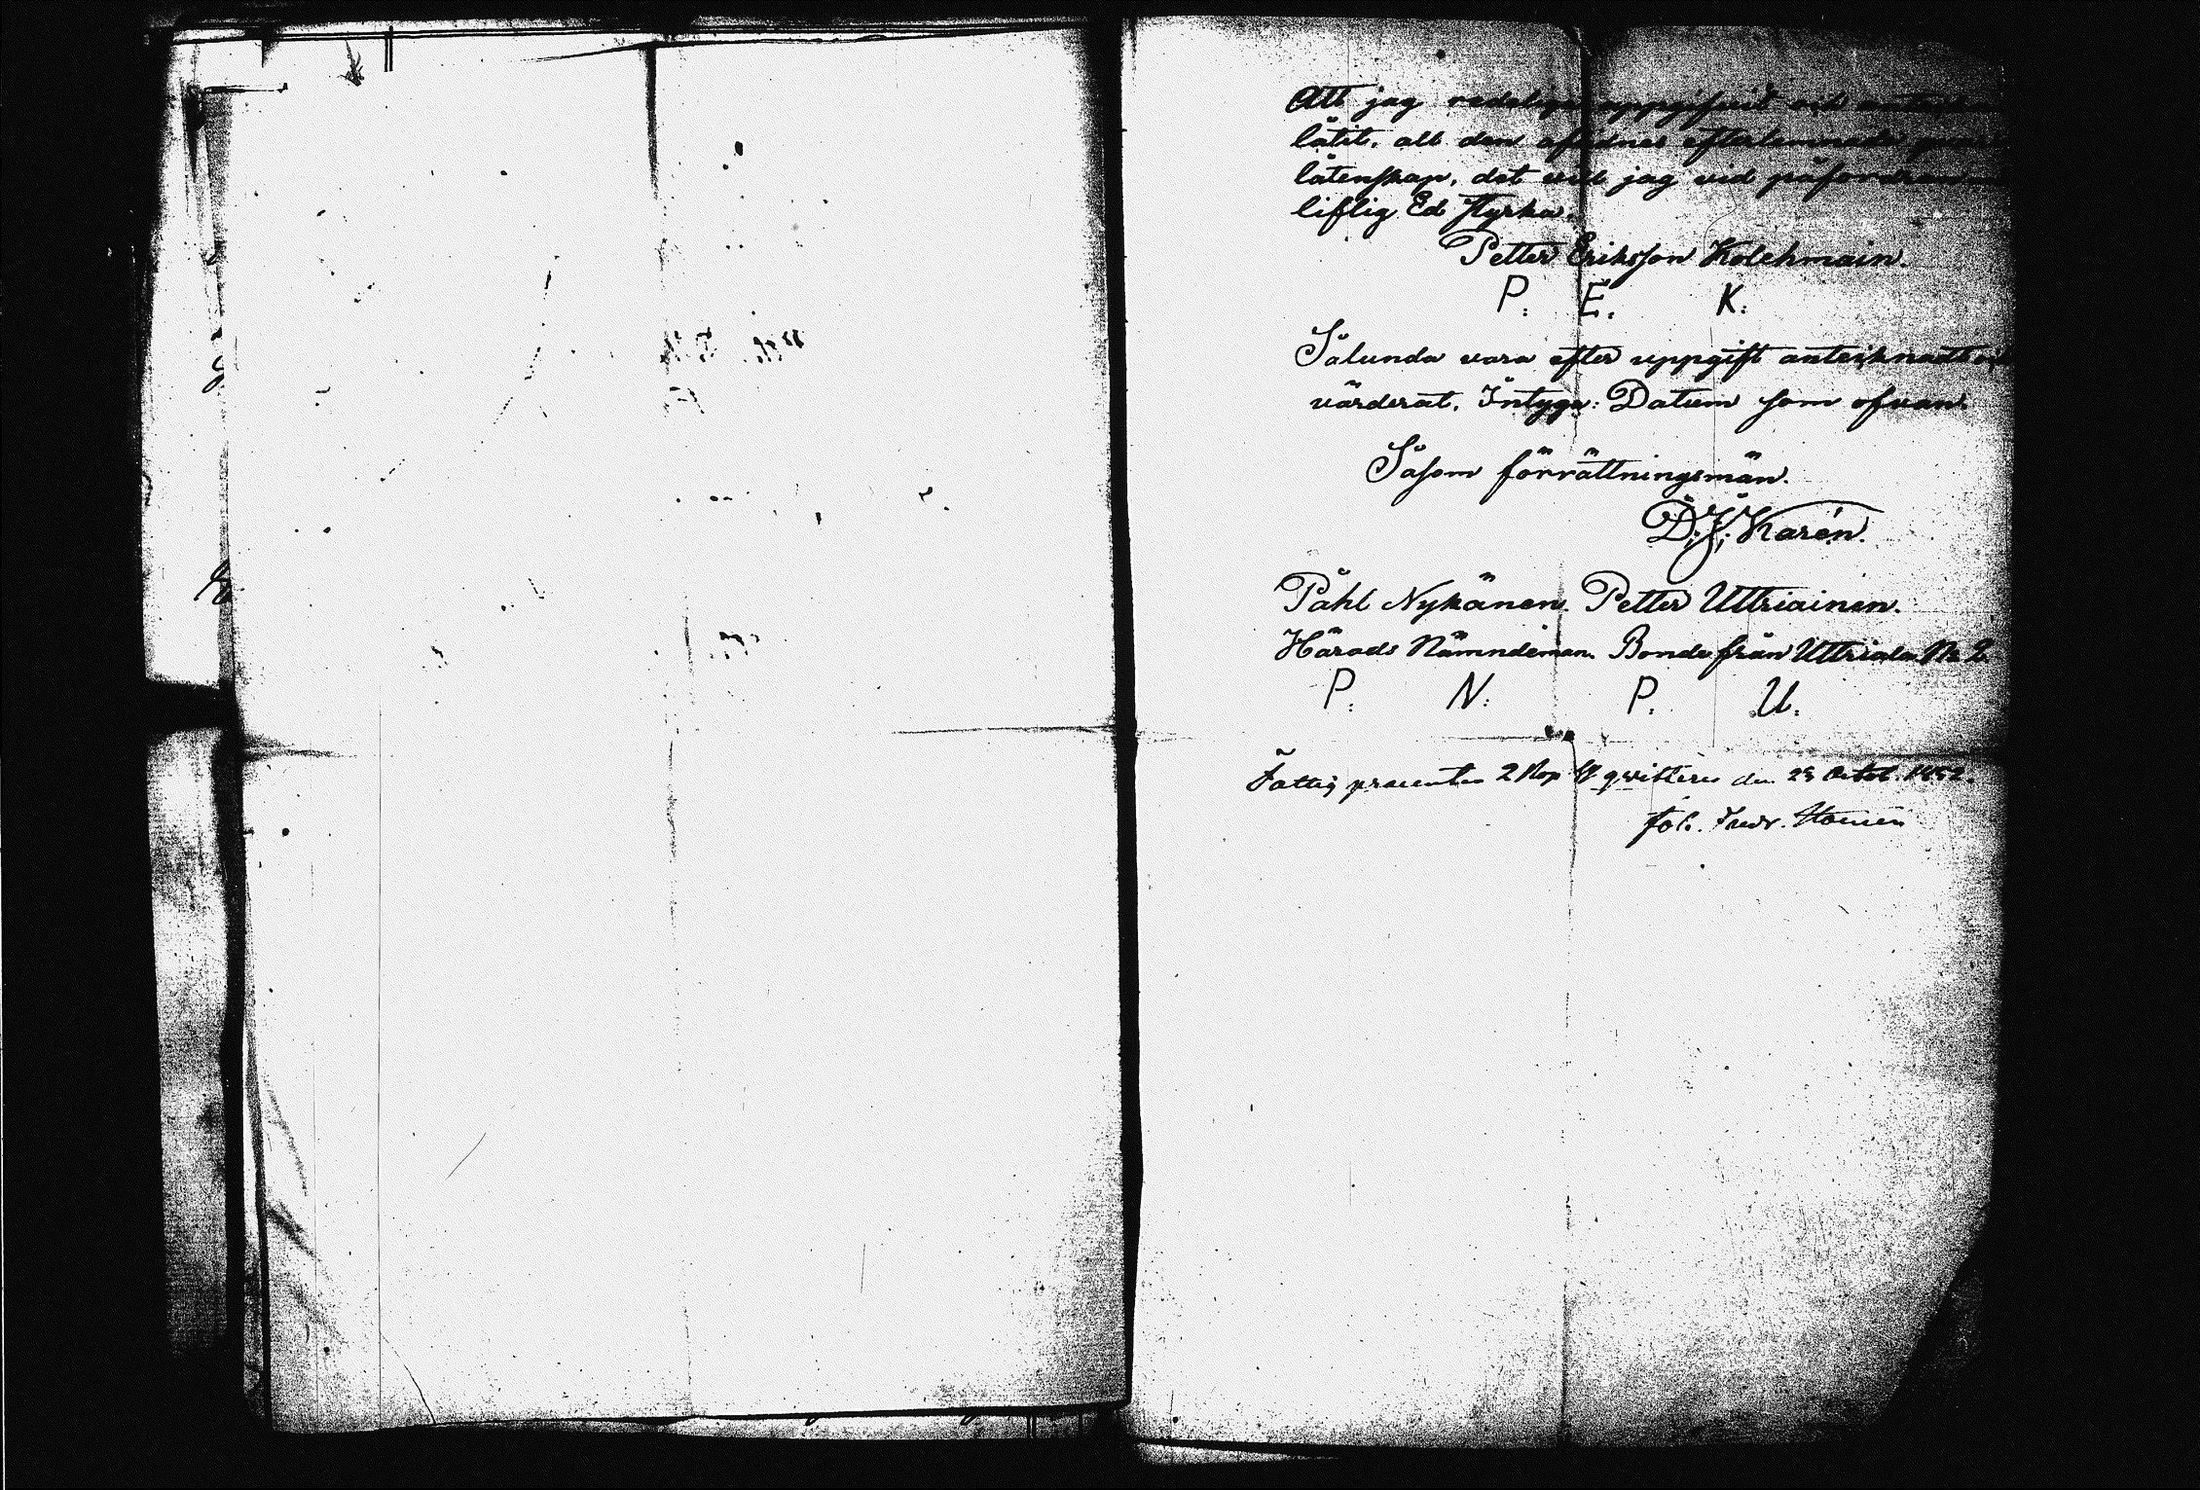 Att jag redeligen uppgifvit och
låtit, all den aflidnes efterlemnade
låtenskap, det vill jag vid påfordran
liflig Ed styrka.
Petter Eriksson Kolehmain.
P: E: K:
Sålunda vara efter uppgift anteiknadt
värderat, Intyga: Datum som ofvan.
Såsom förrättningsmän.
D: J: Karén.
Påhl Nykänen. Petter Uttriainen.
Härads Nämndeman. Bonde från Uttriala No 2
P: N: P: U:
Fattig procenten 2 Kop Sr qvitteras den 23 Octob. 1852.
Joh. Fredr.